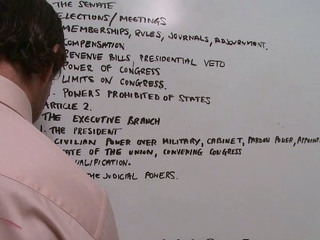 THE SENATE
ELECTIONS/MEETINGS
MEMBERSHIPS, RULES, JOURNALS, ADJOURNMENT.
COMPENSATION
REVENUE BILLS, PRESIDENTIAL VETO
POWER OF CONGRESS
LIMITS ON CONGRESS.
POWERS PROHIBITED OF STATES
ARTICLE 2.
THE EXECUTIVE BRANCH
1. THE PRESIDENT
CIVILIAN POWER OVER MILITARY, CABINET, PARDON POWER,
OF THE UNION, CONVENING CONGRESS
THE JUDICIAL POWERS.